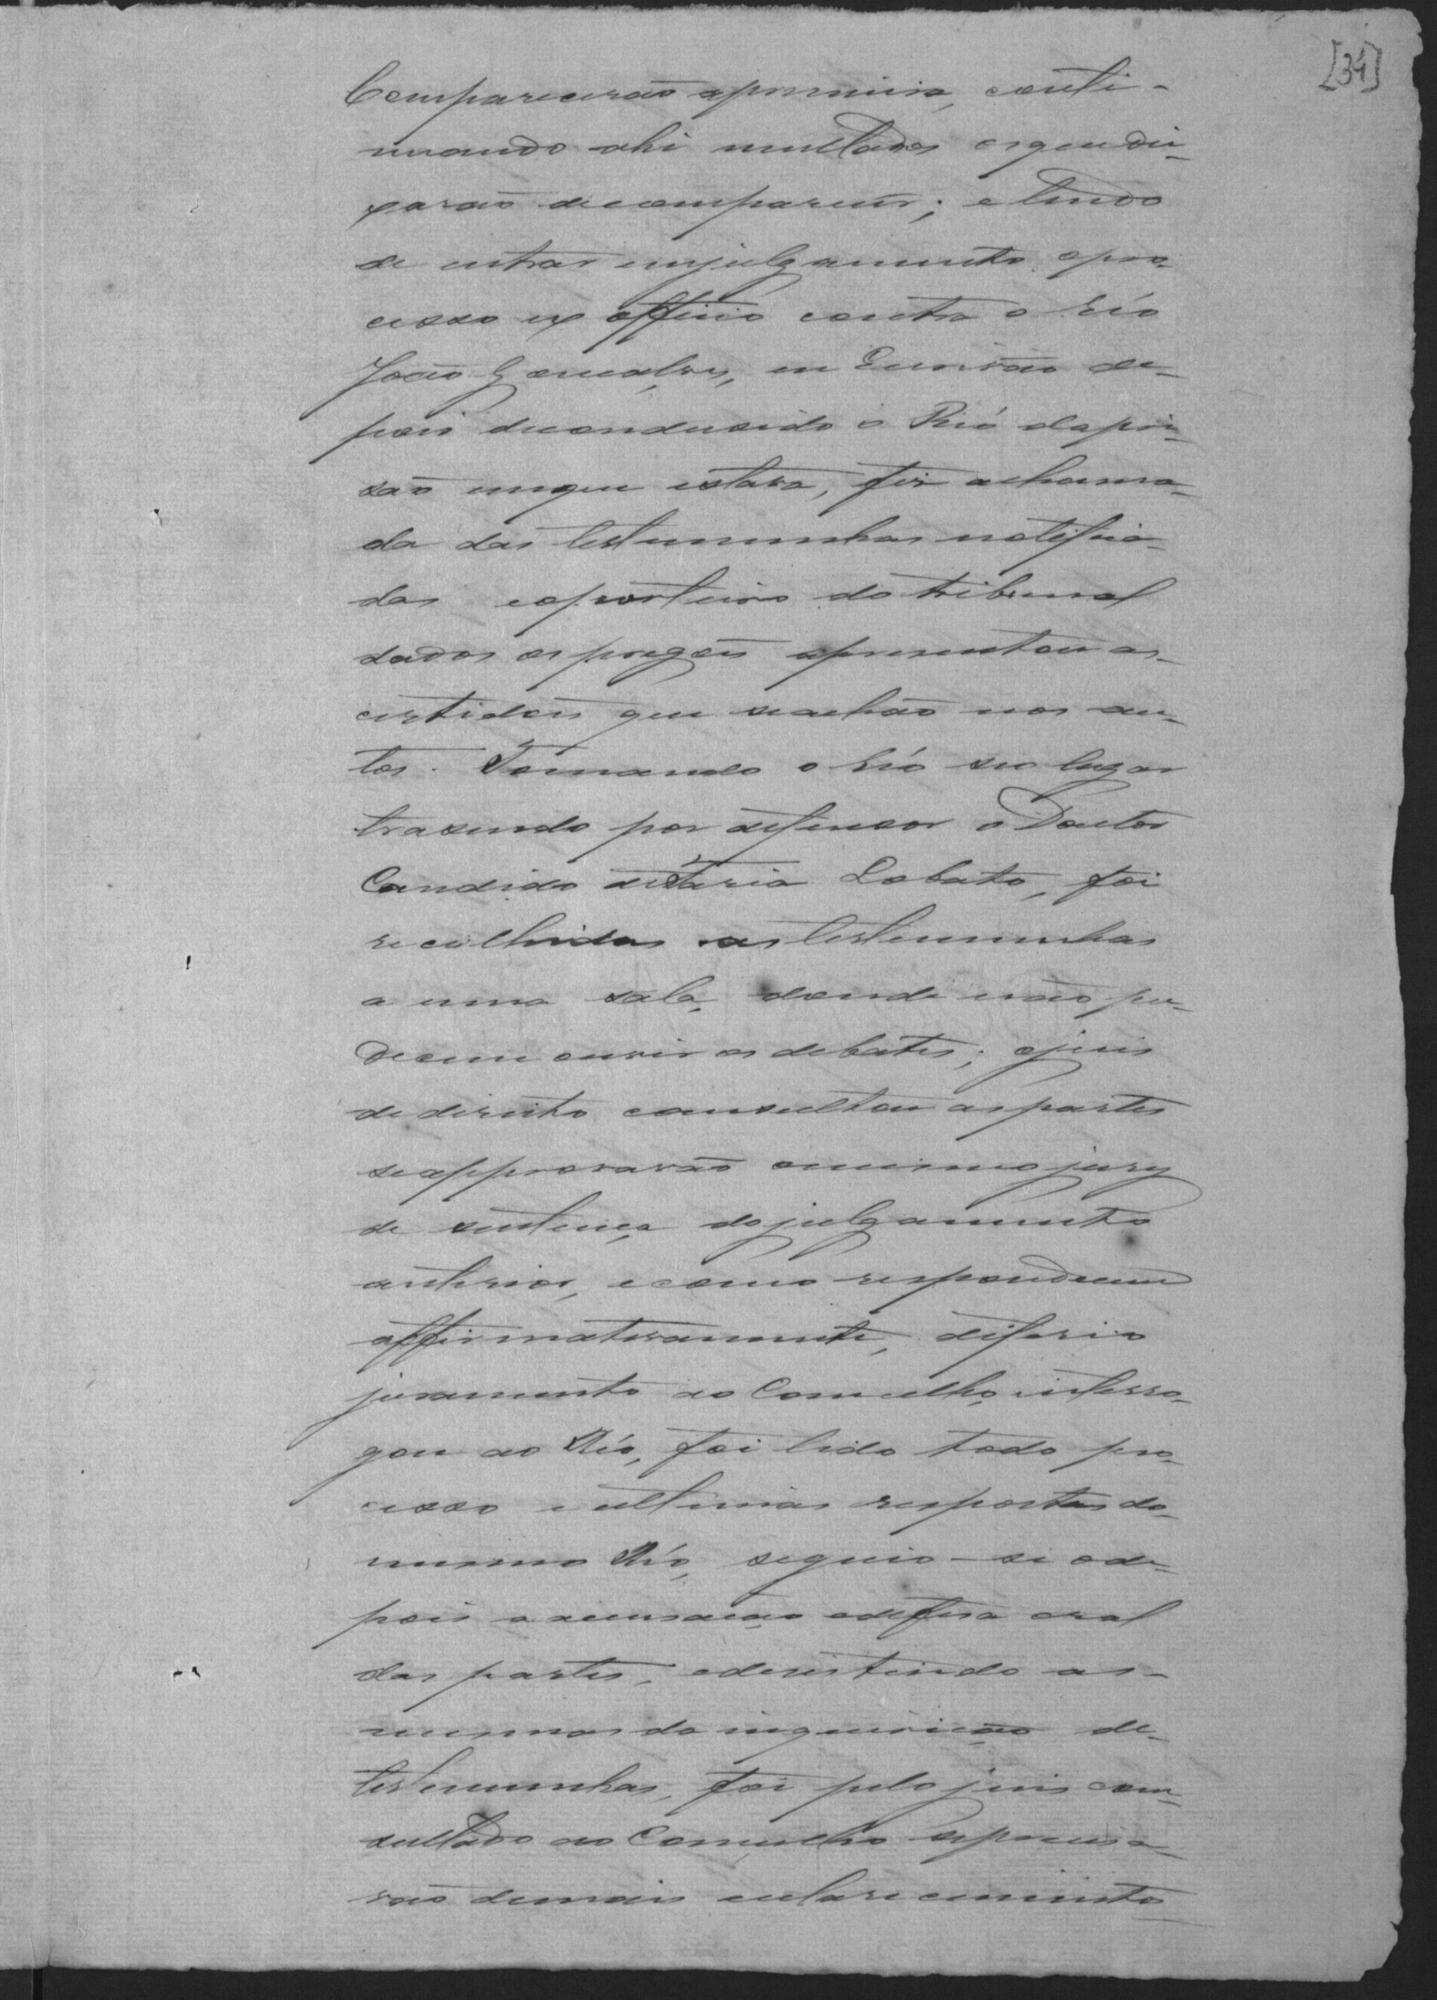 [34]
Comparecerão a primeira, conti-
nuando ahi multados os que dei-
xarão de comparecer; e tendo
de entrar em julgamento o pro-
cesso ex officio contra o réo
João Gonçalves, em de-
pois de conduzido o Réo da pri-
são em que estava, fez a chama-
da das testemunhas notifica-
das e o porteiro do tribunal
dados os pregões apresentou as-
certidões que se achão nos au-
tos. Tomando o réo seo lugar
trazendo por defensor o Doutor
Candido de Faria Lobato, foi
recolhidas as testemunhas
a uma sala, donde não po-
decem ouvir os debates; o juis
de direito consultou as partes
se approvavão o mesmo jury
de sentença do julgamento
anterior, e como respondecem
affirmativamente, diferio
juramento ao Concelho, interro-
gou ao Réo, foi lido todo pro-
cesso e ultimas respostas do-
mesmo Réo, seguio-se e de-
pois a accusação e defesa oral
das partes, e desistindo as-
mesmas da inquirição de-
testemunhas, foi pelo juis con-
sultado ao Concelho se precisa-
vão de mais esclarecimento